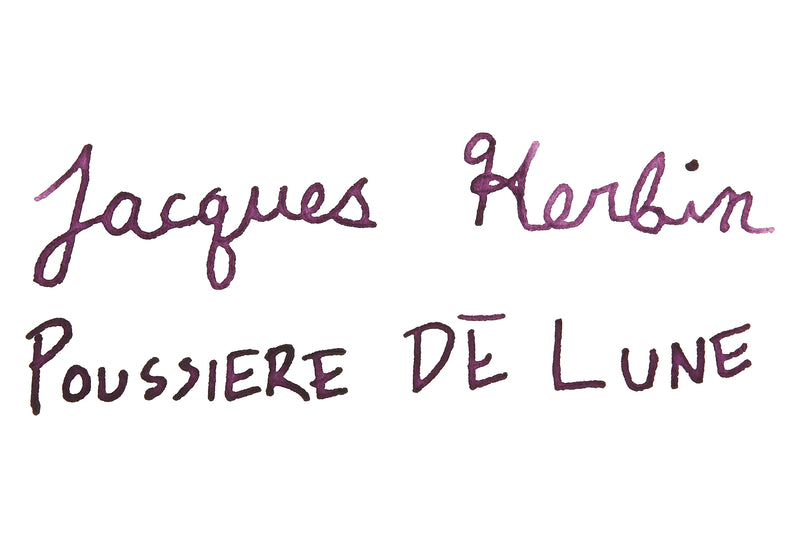 Jacques Herbin
POUSSIERE DĒ LUNE